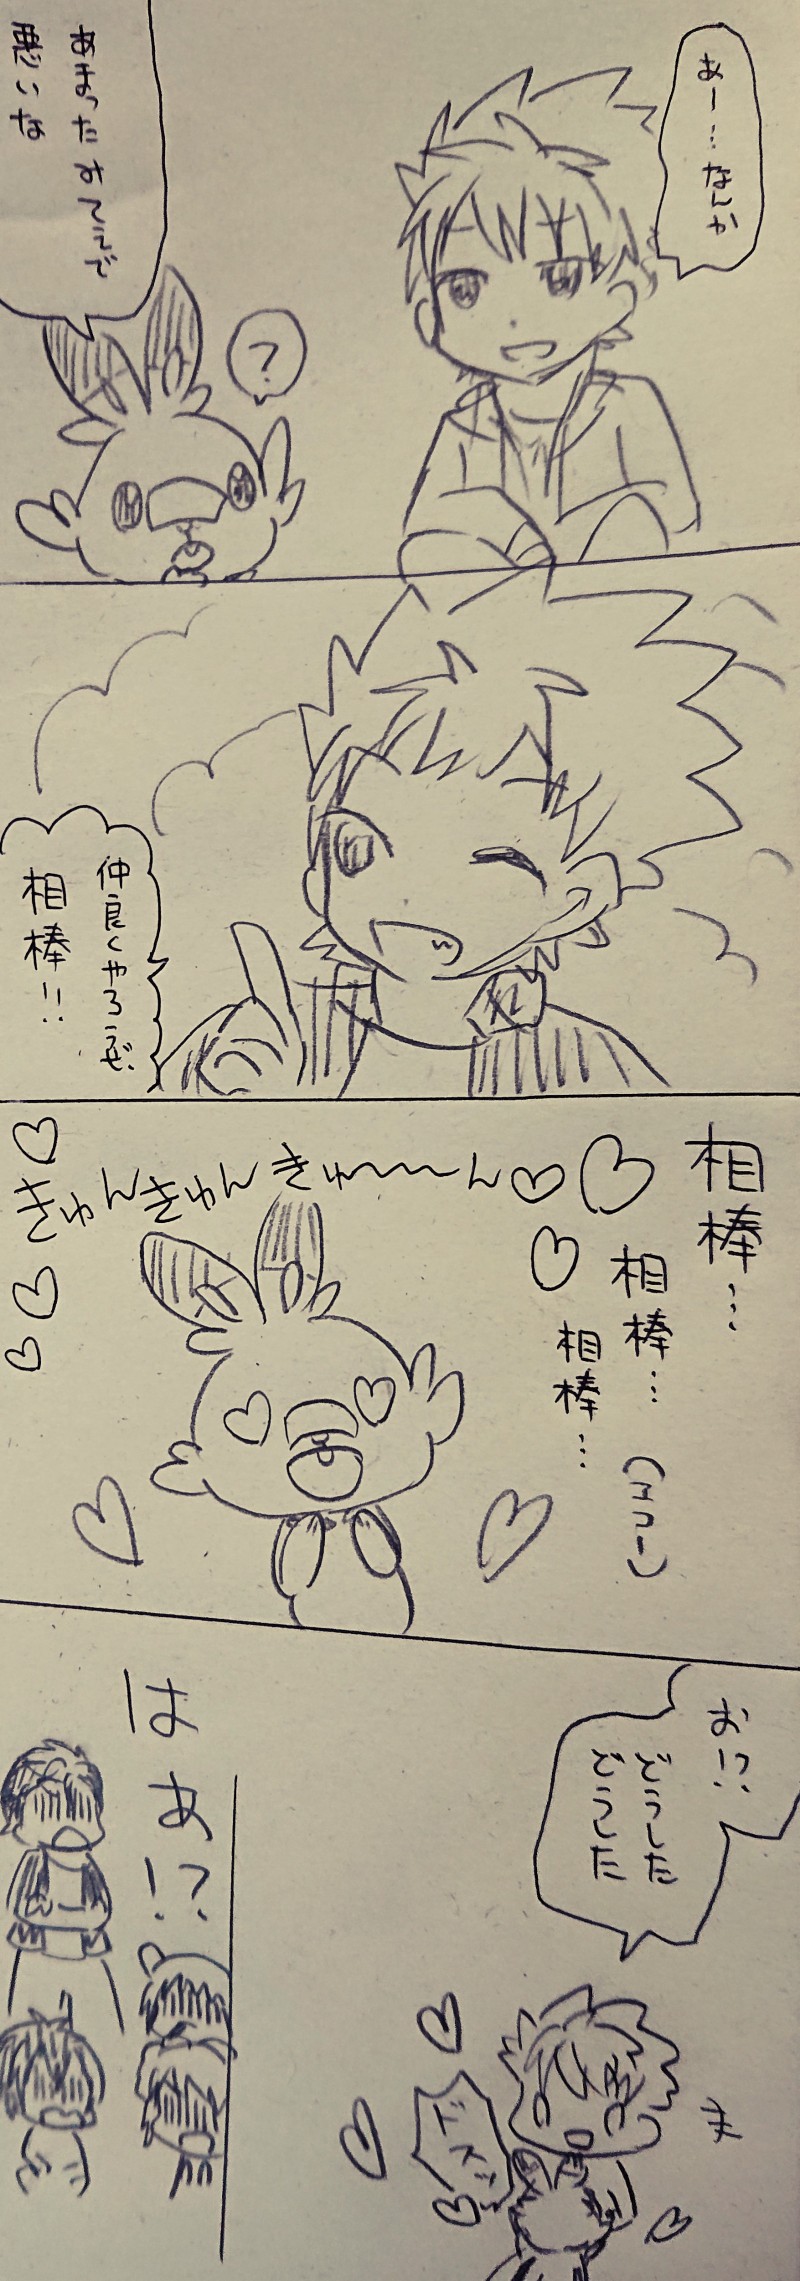 あー…なんか
あまったみてぇで
悪いな
?
仲良くやろうぜ、
相棒!!
相棒…
相棒…
相棒…
(エコー)
きゅんきゅんきゅ〜〜〜ん
お!?
どうした
どうした
ドスッ
はあ!?